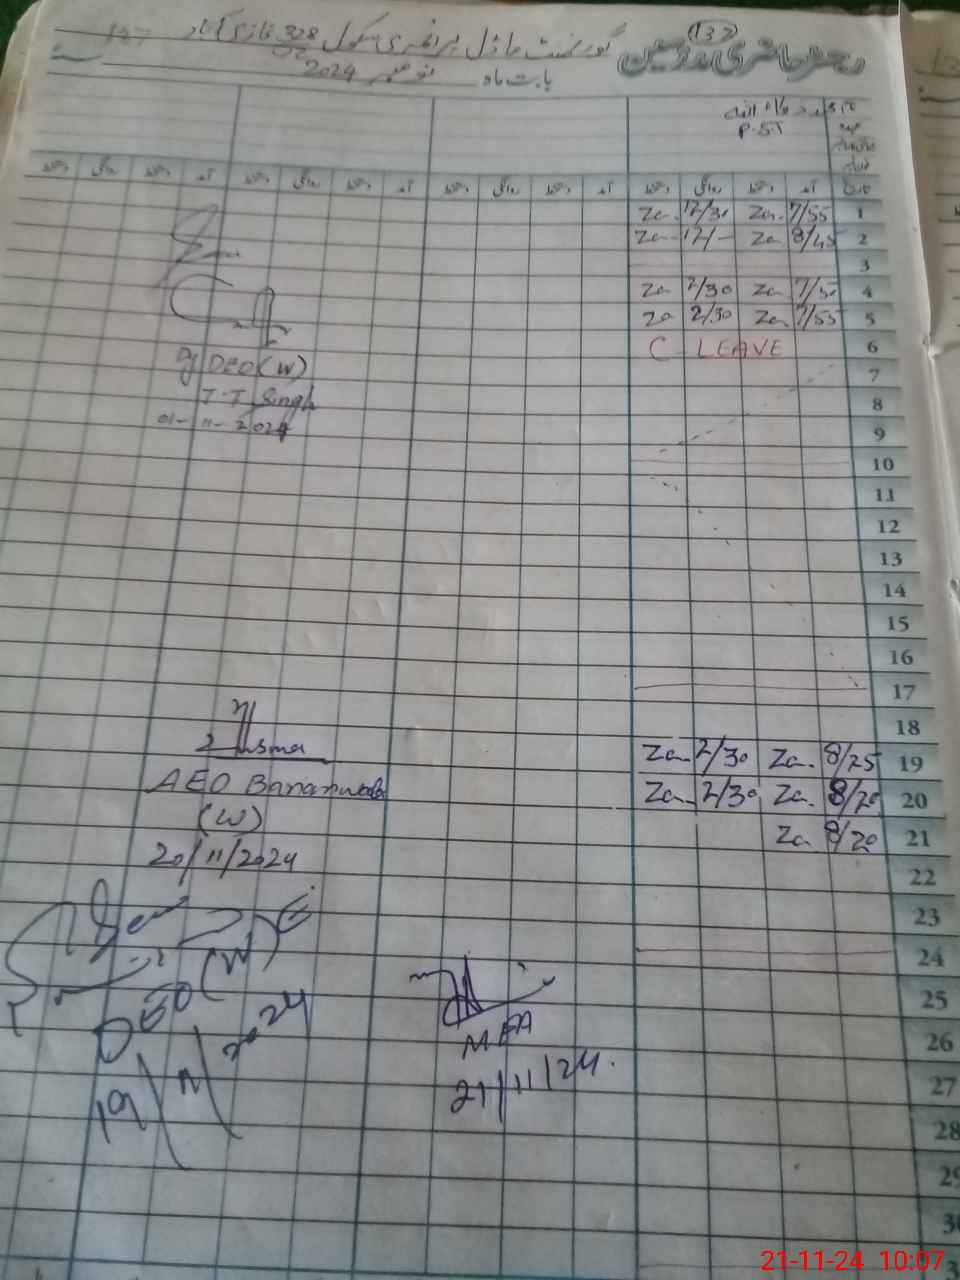 137
رجسٹر حاضری مدرسین
گورنمنٹ ماڈل پرائمری سکول 328
بابت ماہ نومبر 2024
P.S.T
تاریخ آمد دستخط روانگی دستخط آمد دستخط روانگی دستخط آمد دستخط روانگی دستخط
1 7/55 Za. 12/30 Za.
2 8/45 Za 12/- Za
3
4 7/50 Za 2/30 Za
5 7/55 Za 2/30 Za
6 C - LEAVE
7
8
9
10
11
12
13
14
15
16
17
18
19 8/25 Za. 2/30 Za.
20 8/20 Za. 2/30 Za.
21 8/20 Za
22
23
24
25
26
27
28
29
Dy DEO (W)
T.T Singh
01-11-2024
AEO
(W)
20/11/2024
DEO (W)
19/11/2024
MEA
21/11/24.
21-11-24 10:07